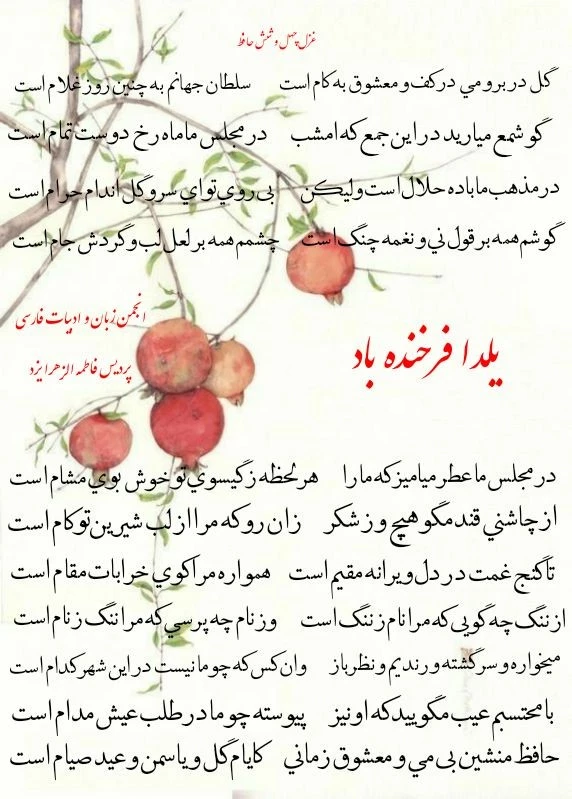 غزل چهل و شش حافظ
گل در بر و مي در کف و معشوق به کام است    سلطان جهانم به چنین روز غلام است
گو شمع میارید در این جمع که امشب    در مجلس ما ماه رخ دوست تمام است
در مذهب ما باده حلال است ولیکن    بی روي تو اي سرو گل اندام حرام است
گوشم همه بر قول ني و نغمه چنگ است    چشمم همه بر لعل لب و گردش جام است
انجمن زبان و ادبیات فارسی
یلدا فرخنده باد
پردیس فاطمه الزهرا یزد
در مجلس ما عطر میامیز که ما را    هر لحظه ز گیسوي تو خوش بوي مشام است
از چاشني قند مگو هیچ و ز شکر    زان رو که مرا از لب شیرین تو کام است
تا گنج غمت در دل ویرانه مقیم است    همواره مرا کوي خرابات مقام است
از ننگ چه گویی که مرا نام ز ننگ است    وز نام چه پرسي که مرا ننگ ز نام است
میخواره و سرگشته و رندیم و نظرباز    وان کس که چو ما نیست در این شهر کدام است
با محتسبم عیب مگویید که او نیز    پیوسته چو ما در طلب عیش مدام است
حافظ منشین بی می و معشوق زماني    کایام گل و یاسمن و عید صیام است